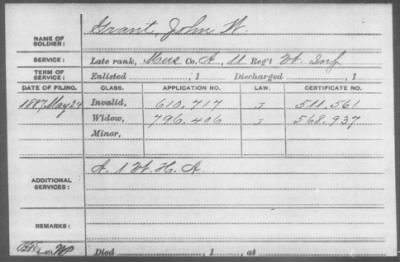 NAME OF SOLDIER: Grant, John W.
SERVICE: Late rank, Mus Co. A, 11 Reg't Vt. Inf
TERM OF SERVICE: Enlisted , 1 Discharged , 1
DATE OF FILING. CLASS. APPLICATION NO. LAW. CERTIFICATE NO.
1887, May 24 Invalid, 610.717 J 511.561
Widow, 796.406 J 568.937
Minor,
ADDITIONAL SERVICES: A. 1 Vt. H. A.
REMARKS:
Died , 1 , at